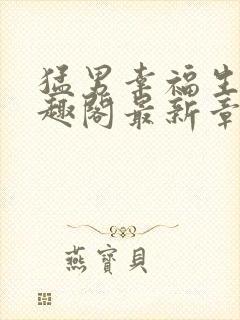 猛男幸福生
趣阁最新章
燕寳貝